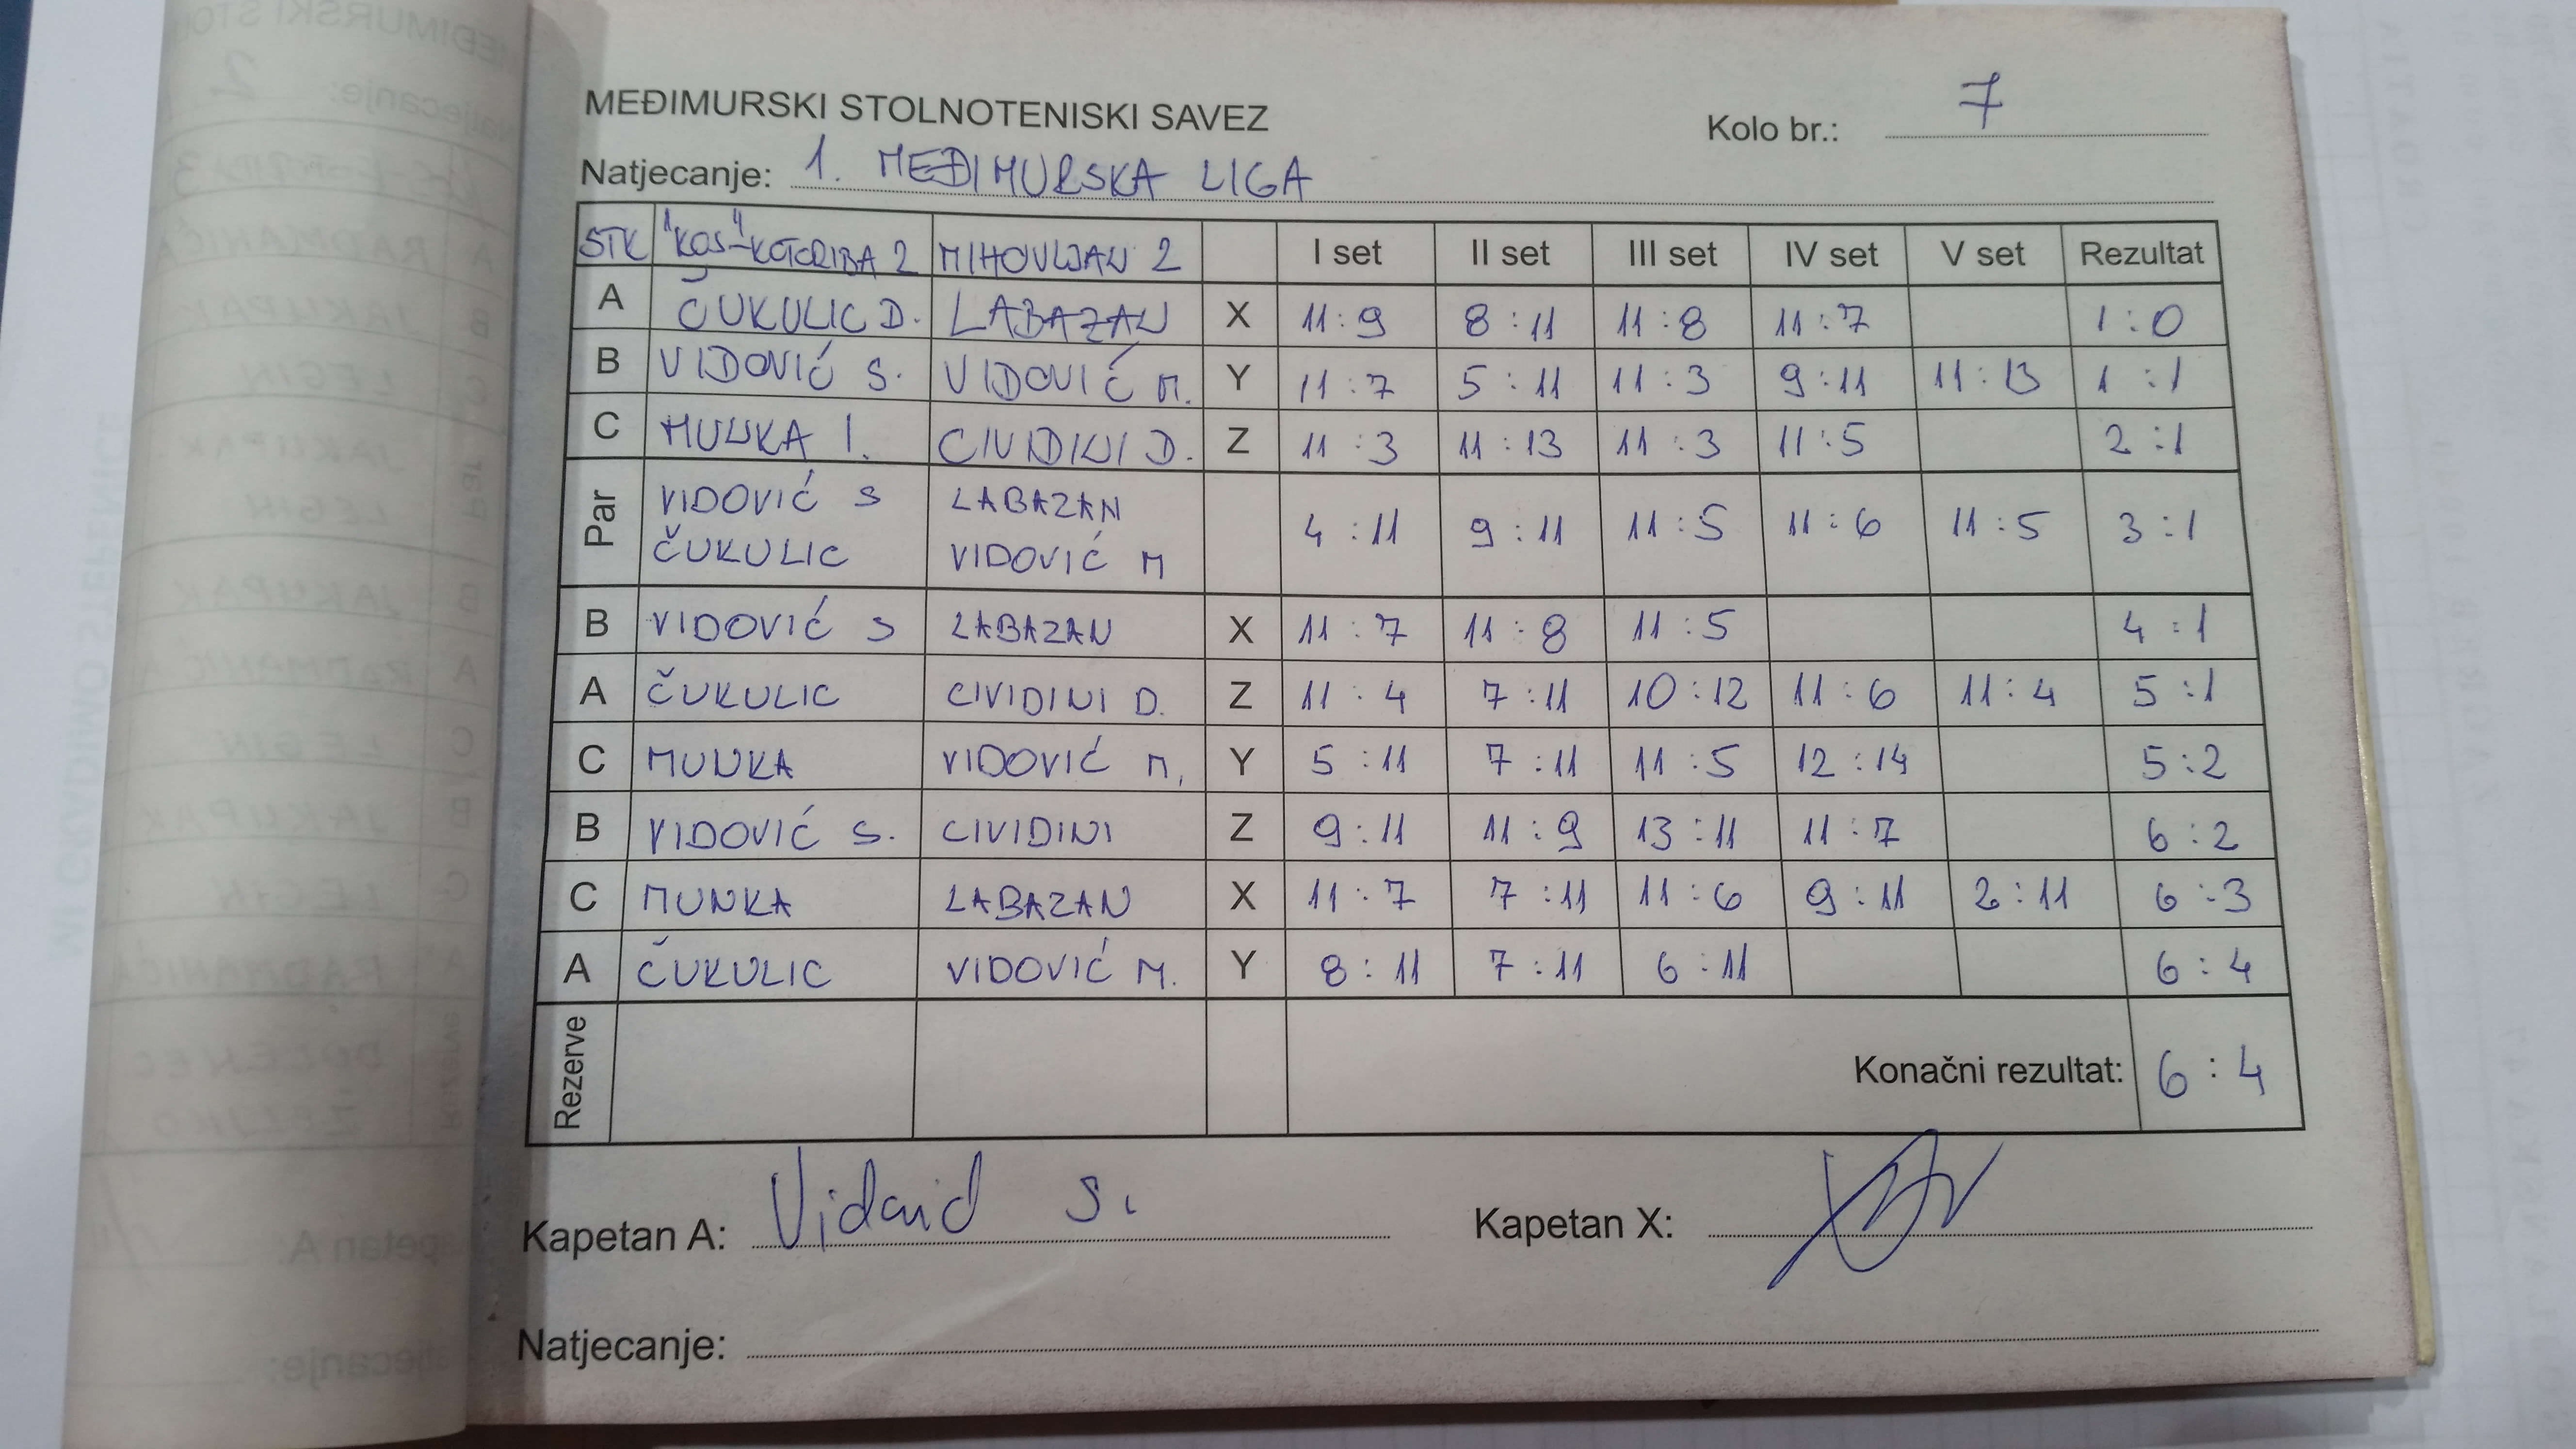 MEĐIMURSKI STOLNOTENISKI SAVEZ
Kolo br.: 7
Natjecanje: 1. MEĐIMURSKA LIGA
STK "KOS"-KOTORIBA 2 MIHOVLJAN 2 I set II set III set IV set V set Rezultat
A ČUKULIC D. LABAZAN X 11:9 8:11 11:8 11:7 1:0
B VIDOVIĆ S. VIDOVIĆ M. Y 11:7 5:11 11:3 9:11 11:13 1:1
C MUNKA I. CIVIDINI D. Z 11:3 11:13 11:3 11:5 2:1
Par VIDOVIĆ S LABAZAN 4:11 9:11 11:5 11:6 11:5 3:1
ČUKULIC VIDOVIĆ M
B VIDOVIĆ S LABAZAN X 11:7 11:8 11:5 4:1
A ČUKULIC CIVIDINI D. Z 11:4 7:11 10:12 11:6 11:4 5:1
C MUNKA VIDOVIĆ M. Y 5:11 7:11 11:5 12:14 5:2
B VIDOVIĆ S. CIVIDINI Z 9:11 11:9 13:11 11:7 6:2
C MUNKA LABAZAN X 11:7 7:11 11:6 9:11 2:11 6:3
A ČUKULIC VIDOVIĆ M. Y 8:11 7:11 6:11 6:4
Rezerve Konačni rezultat: 6:4
Kapetan A: Vidović S. Kapetan X:
Natjecanje: